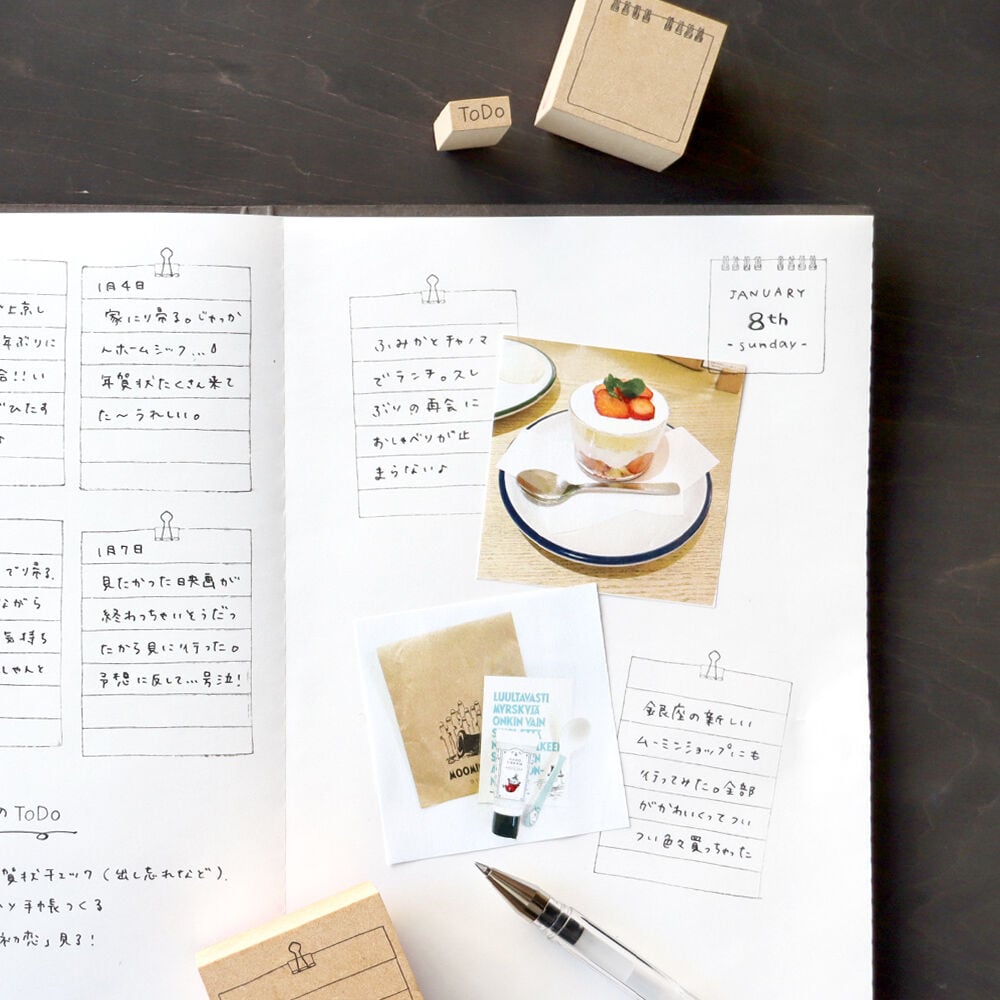 ToDo
上京し
年ぶりに
!!い
ひたす
1月4日
家に帰る。じゃっか
んホームシック...
年賀状たくさん来て
た〜うれしい。
で帰る。
ながら
気持ち
しゃんと
1月7日
見たかった映画が
終わっちゃいそうだっ
たから見に行った。
予想に反して...号泣!
のToDo
賀状チェック(出し忘れなど).
手帳つくる
初恋」見る!
ふみかとチャノマ
でランチ。久し
ぶりの再会に
おしゃべりが止
まらない♪
JANUARY
8th
-sunday-
LUULTAVASTI
MYRSKYTÄ
ONKIN VAIN
MOOMI
HAND
CREAM
銀座の新しい
ムーミンショップにも
行ってみた。全部
がかわいくってつい
つい色々買っちゃった